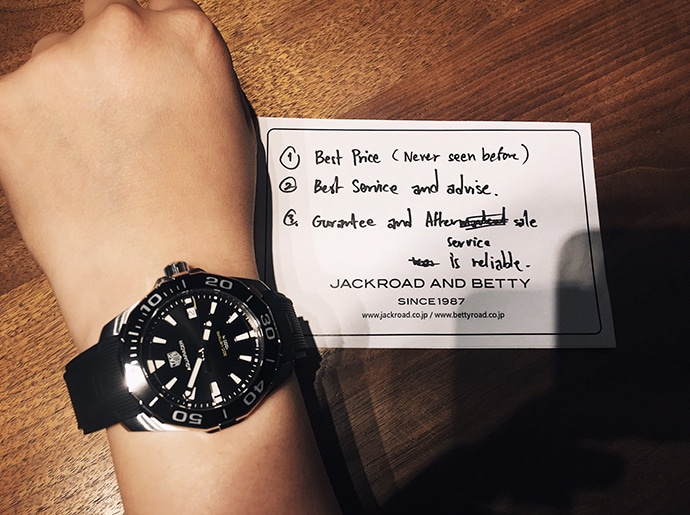 ① Best Price (Never seen before)
② Best Service and advise.
③. Gurantee and After sale
service
is reliable.
JACKROAD AND BETTY
SINCE1987
www.jackroad.co.jp / www.bettyroad.co.jp
10
20
30
40
50
TAGHEUER